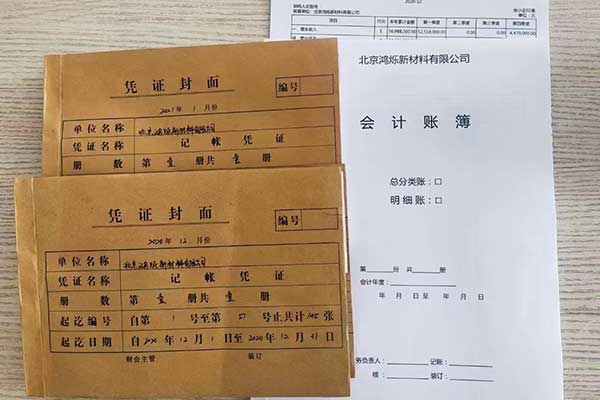 凭证封面
编号
2021年 1 月份
单位名称 北京鸿烁新材料有限公司
凭证名称 记帐凭证
册数 第壹册共壹册
凭证封面
编号
2020年 12 月份
单位名称 北京鸿烁新材料有限公司
凭证名称 记帐凭证
册数 第壹册共壹册
起讫编号 自第 1 号至第 57 号止共计 145 张
起讫日期 自2020年12月1日至2020年12月31日
财会主管 装订
2020-12
纳税人识别号
北京鸿烁新材料有限公司
会小企02表
单位：元
项目 行次 本年累计金额 第一季度 第二季度 第三季度 第四季度
一、营业收入 1 52,518,000.00 0.00 0.00 4,470,000.00
北京鸿烁新材料有限公司
会计账簿
总分类账：□
明细账：□
第 册 共 册
会计年度：
年 月 日 至 年 月 日
务负责人： 记账：
核： 装订：